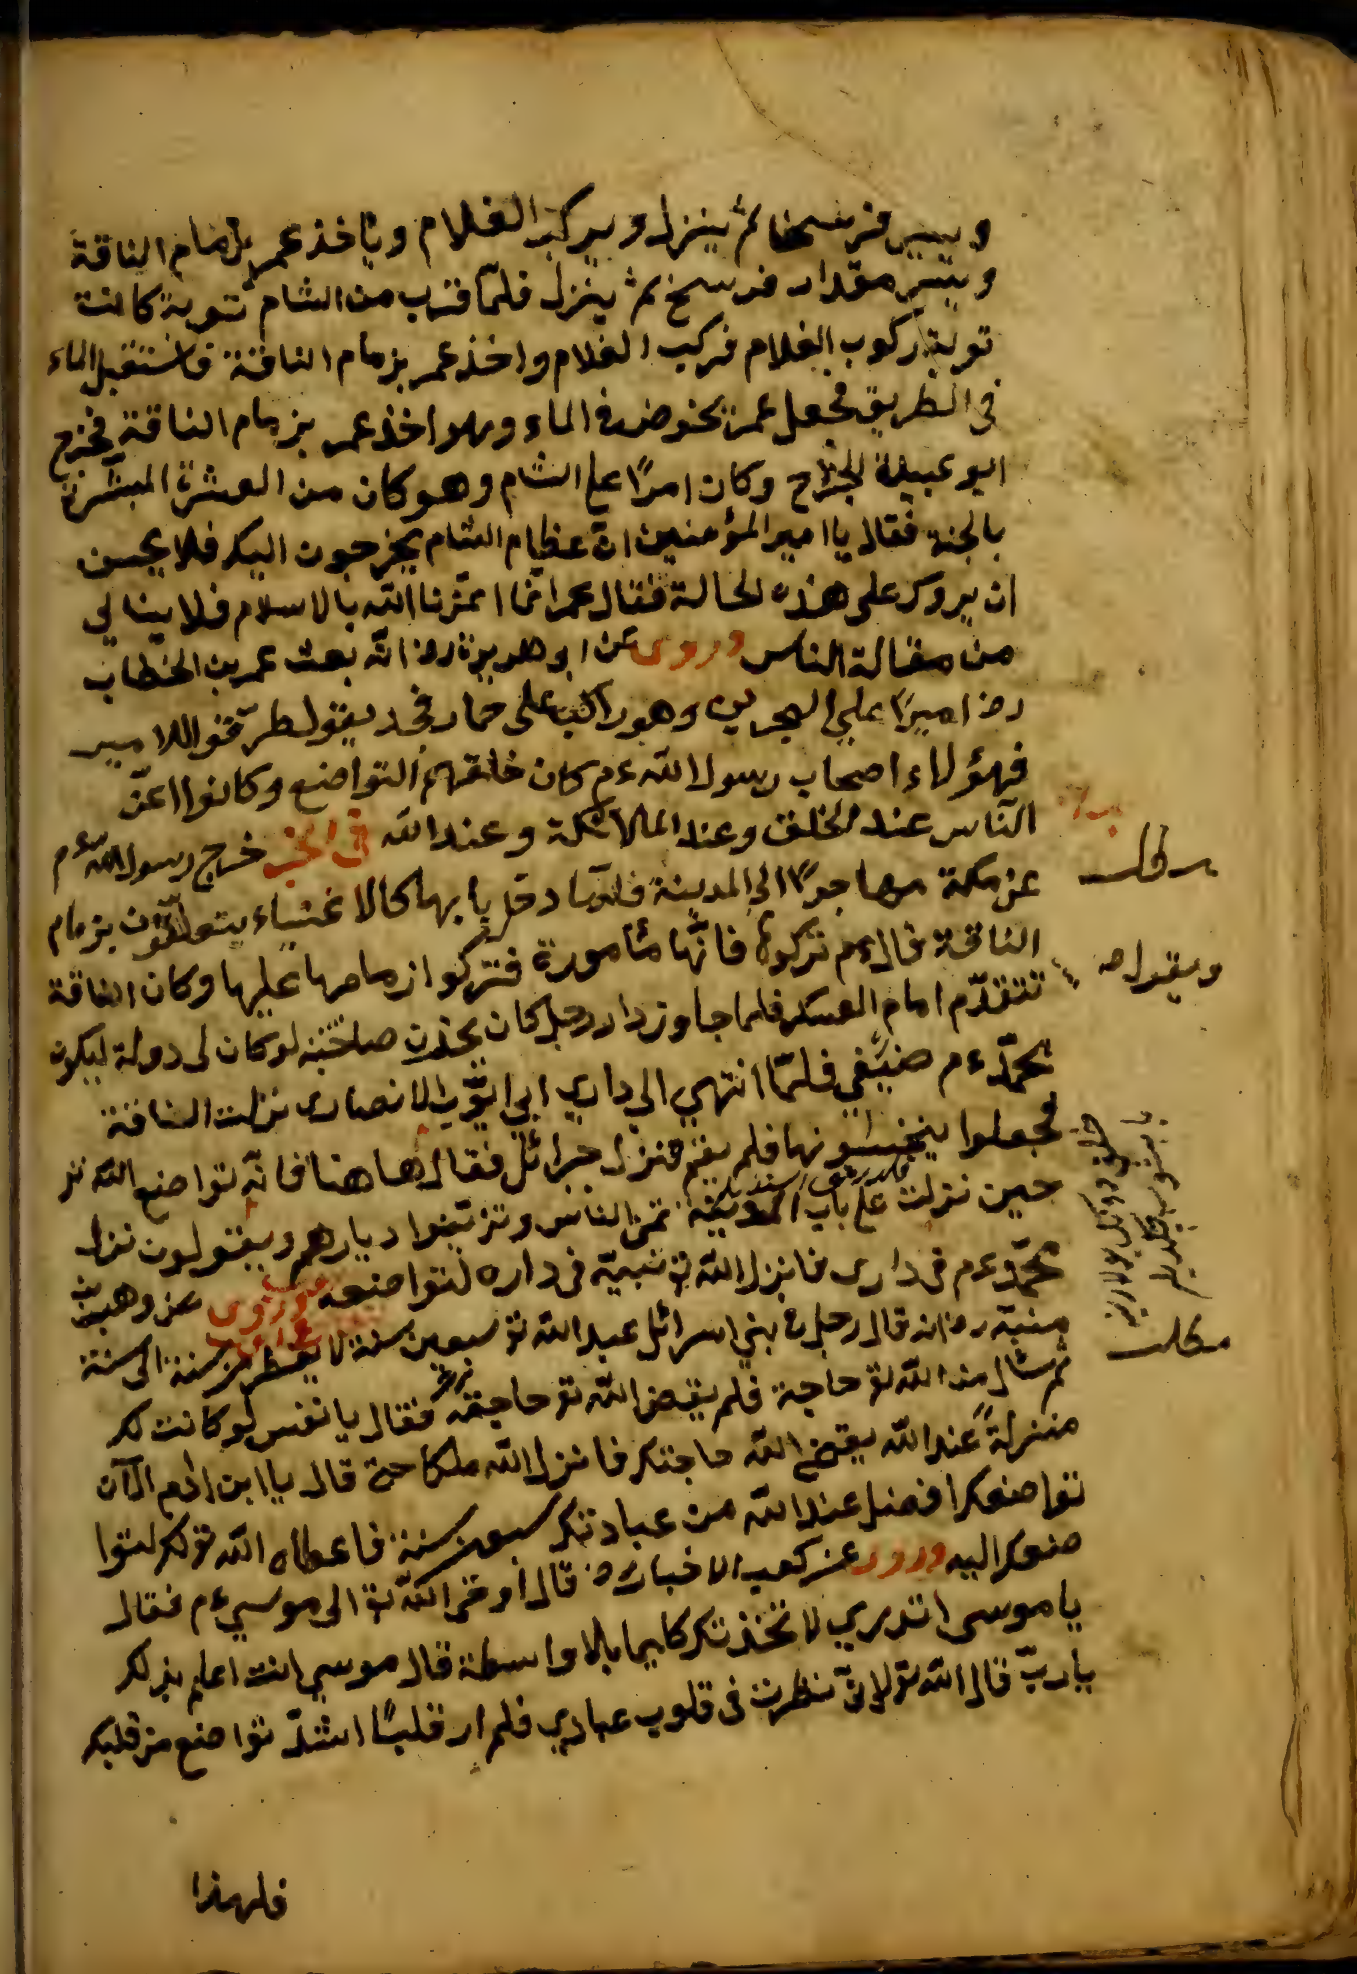 ويسير فرسخا ثم ينزل ويركب الغلام وياخذ عمر بزمام الناقة
ويسير مقدار فرسخ ثم ينزل فلما قرب من الشام نوبة كانت
نوبة ركوب الغلام فركب الغلام واخذ عمر بزمام الناقة فاستقبل الماء
في الطريق فجعل عمر يخوض في الماء وهو اخذ عمر بزمام الناقة فخرج
ابو عبيدة الجراح وكان اميرًا على الشام وهو كان من العشرة المبشرة
بالجنة فقال يا امير المؤمنين ان عظام الشام يخرجون اليك فلا يحسن
ان يروك على هذه الحالة فقال عمر انما اعزنا الله بالاسلام فلا ينالي
من مقالة الناس وروى عن ابو هريرة رض انه بعث عمر بن الخطاب
رض اميرًا على البحرين وهو راكب على حمار فجد يقول طرقوا للامير
فهؤلاء اصحاب رسول الله ءم كان خلقهم التواضع وكانوا اعزّ
الناس عند الخلق وعند الملائكة وعند الله في الخبر خرج رسول الله ءم
عن مكة مهاجرًا الى المدينة فلما دخل بابها كالاغنياء يتعلقون بزمام
الناقة قال ءم تركوها فانها مأمورة فتركوا زمامها عليها وكان الناقة
تتقدم امام العسكر فلما جاوز دار رجل كان يحزن صاحبه لو كان لى دولة ليكون
محمد ءم ضيفي فلما انتهي الى داري ابي ايوب الانصارى نزلت الناقة
فجعلوا ينخسونها فلم يقم فنزل جبرائل فقال ها هنا فانه تواضع لله تو
حين نزلت على باب المدينة تمن الناس وتزينوا ديارهم ويقولون نزل
محمد ءم في دارى فانزل الله تو نبيه في داره لتواضعه وروى عن وهب بن
منبه رض انه قال رجل في بني اسرائل عبد الله تو سبعين سنة لا يفطر من سنة الى سنة
ثم سأل من الله تو حاجة فلم يقض الله تو حاجته فقال يا نفس لو كانت لك
منزلةً عند الله يقضي الله حاجتك فانزل الله ملكا حتى قال يا ابن ادم الآن
تواضعك افضل عند الله من عبادتك سبعين سنة فاعطاه الله تو لك لتوا
ضعك اليه وروى عن كعب الاخبار رض قال اوحى الله تو الى موسي ءم فقال
يا موسى اتدري لا تخذتك كليما بلا واسطة قال موسي انت اعلم بذلك
يا ربّ قال الله تو لاني نظرت في قلوب عبادي فلم ار قلبًا اشدّ تواضع من قلبك
فلهذا
ويقول